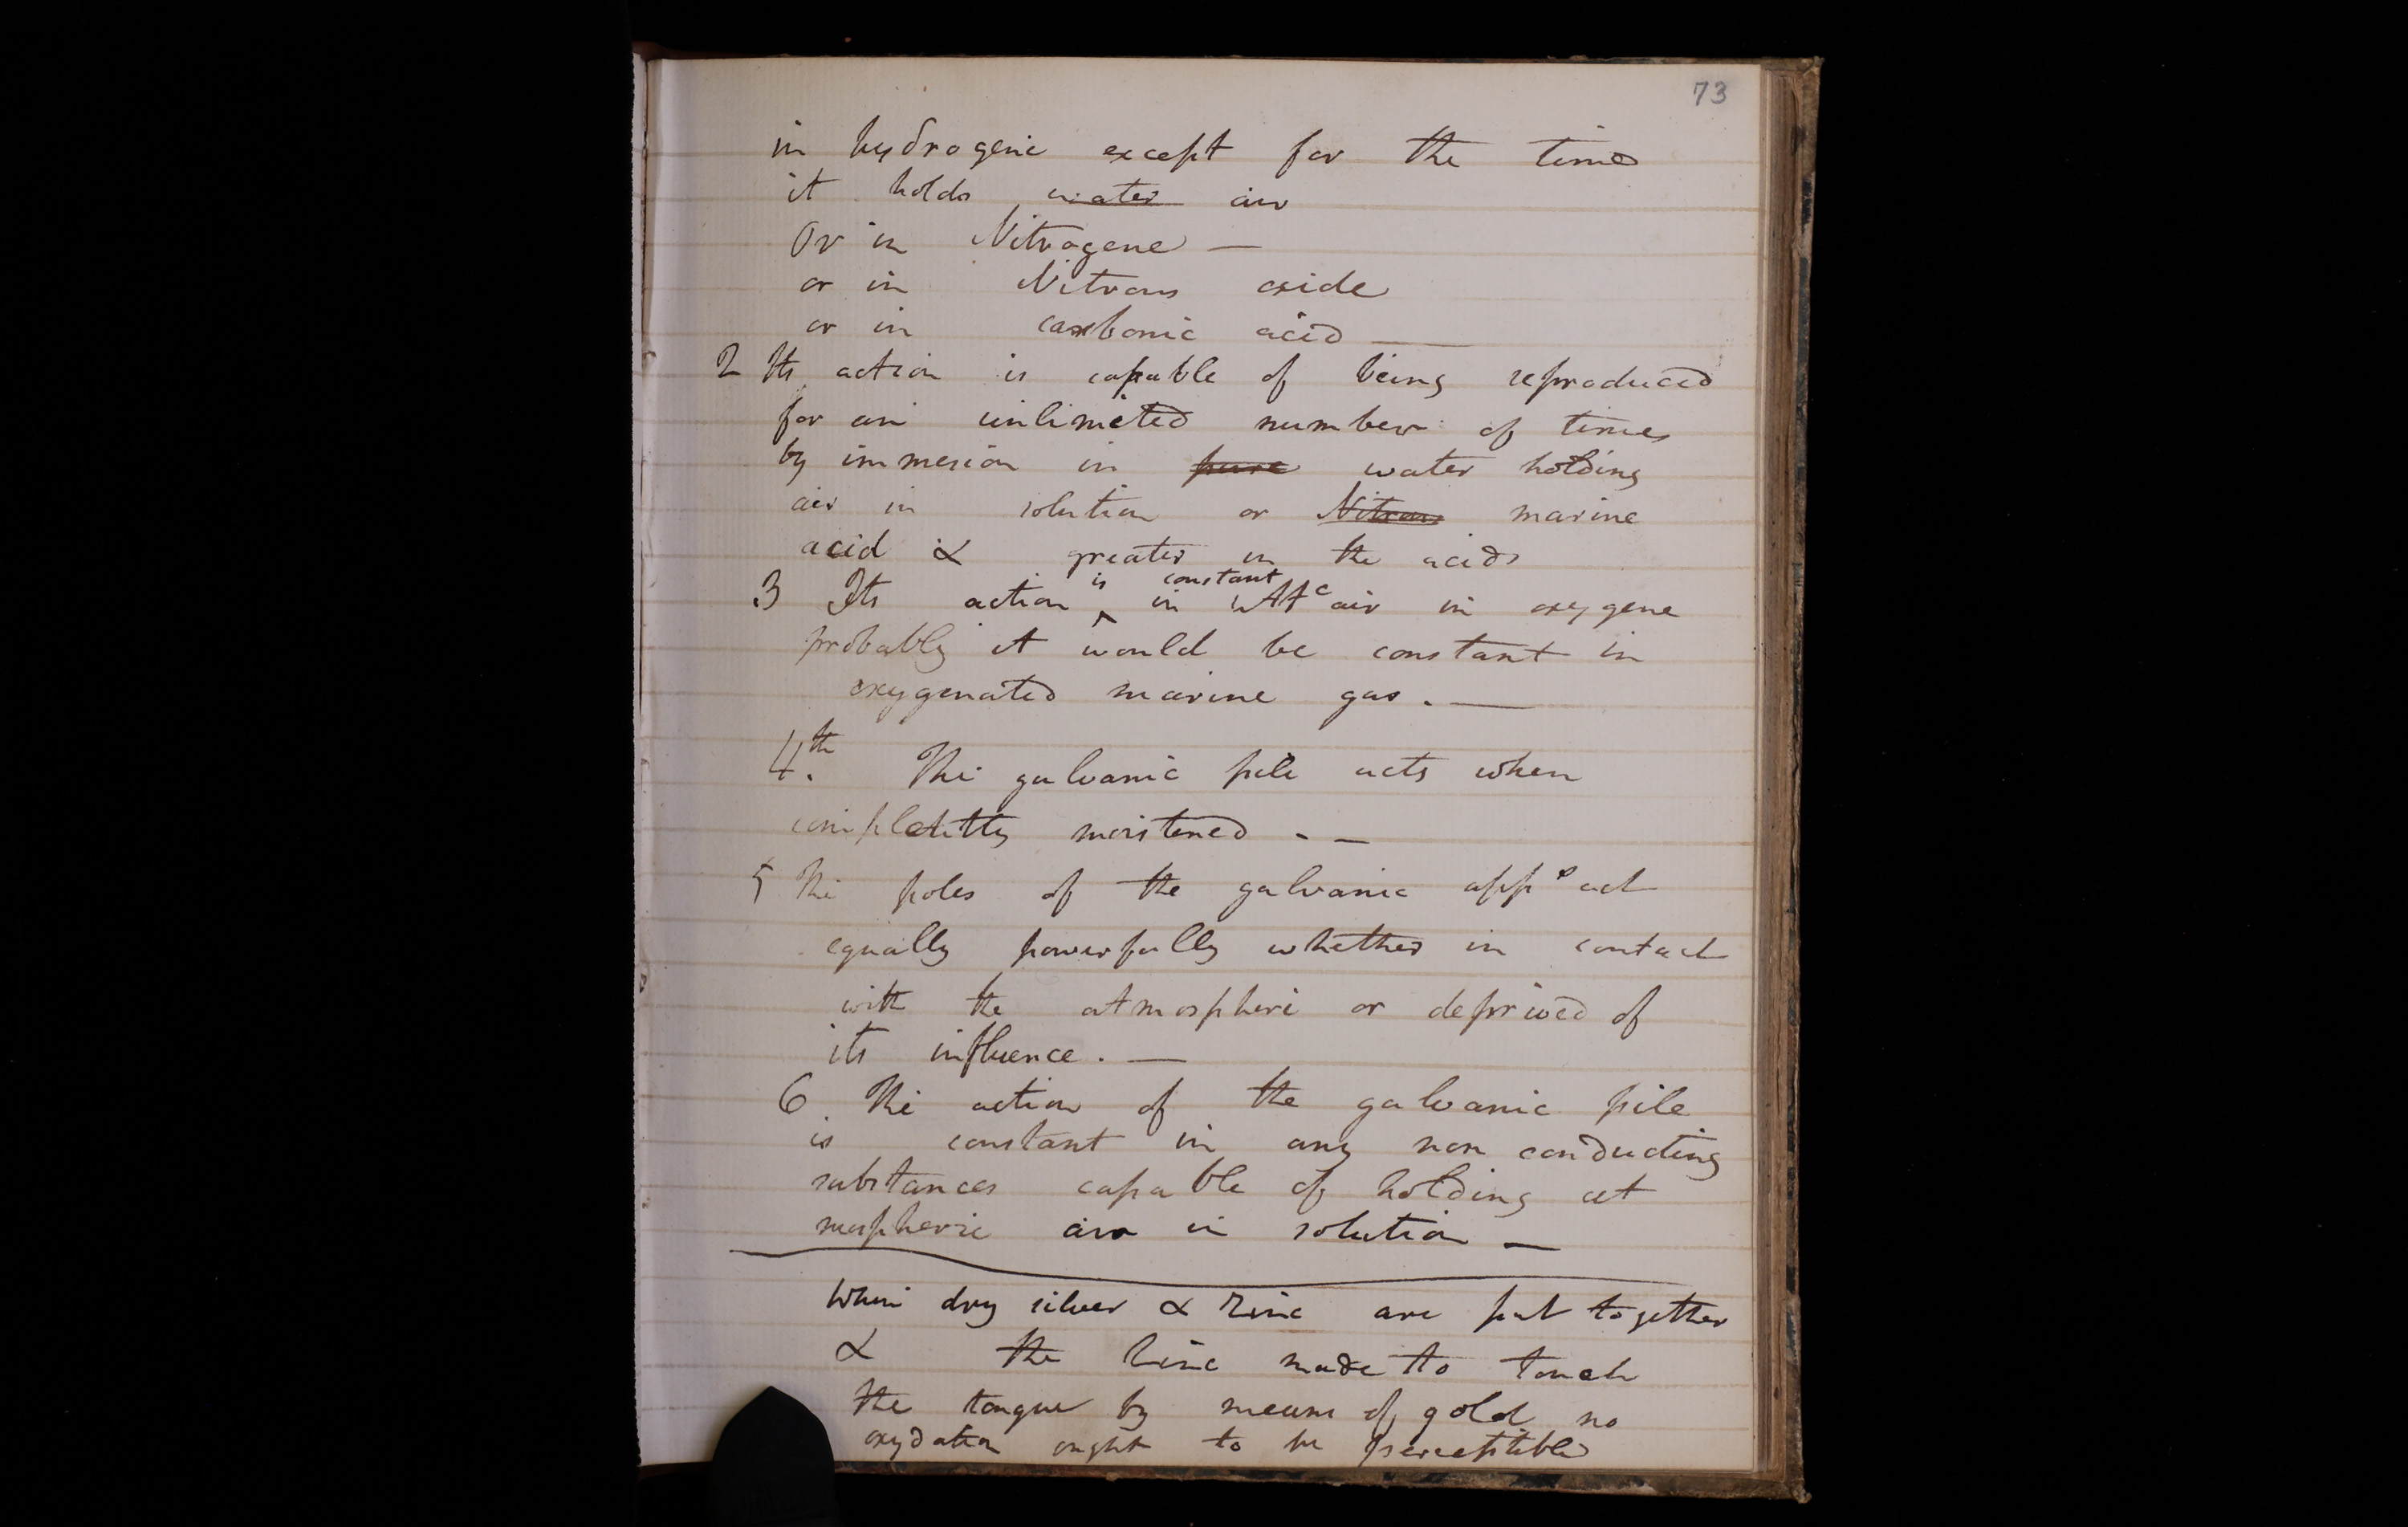 73
in hydrogene except for the time
it holds water air
Or in Nitrogene —
or in Nitrous oxide
or in carbonic acid —
2 Its action is capable of being reproduced
for an unlimited number of times
by immesion in pure water holding
air in solution or Nitrous marine
acid & greater in the acids
3 Its action is constant in Atc air in oxygene
probably it would be constant in
oxygenated marine gas. —
4th. The galvanic pile acts when
completetly moistened - —
5 The poles of the galvanic apps act
equally powerfully whether in contact
with the atmosphere or deprived of
its influence. —
6. The action of the galvanic pile
is constant in any non conducting
substances capable of holding at
mospheric air in solution —
When dry silver & Zinc are put together
& the Zinc made to touch
the tongue by means of gold no
oxydation ought to be perceptible